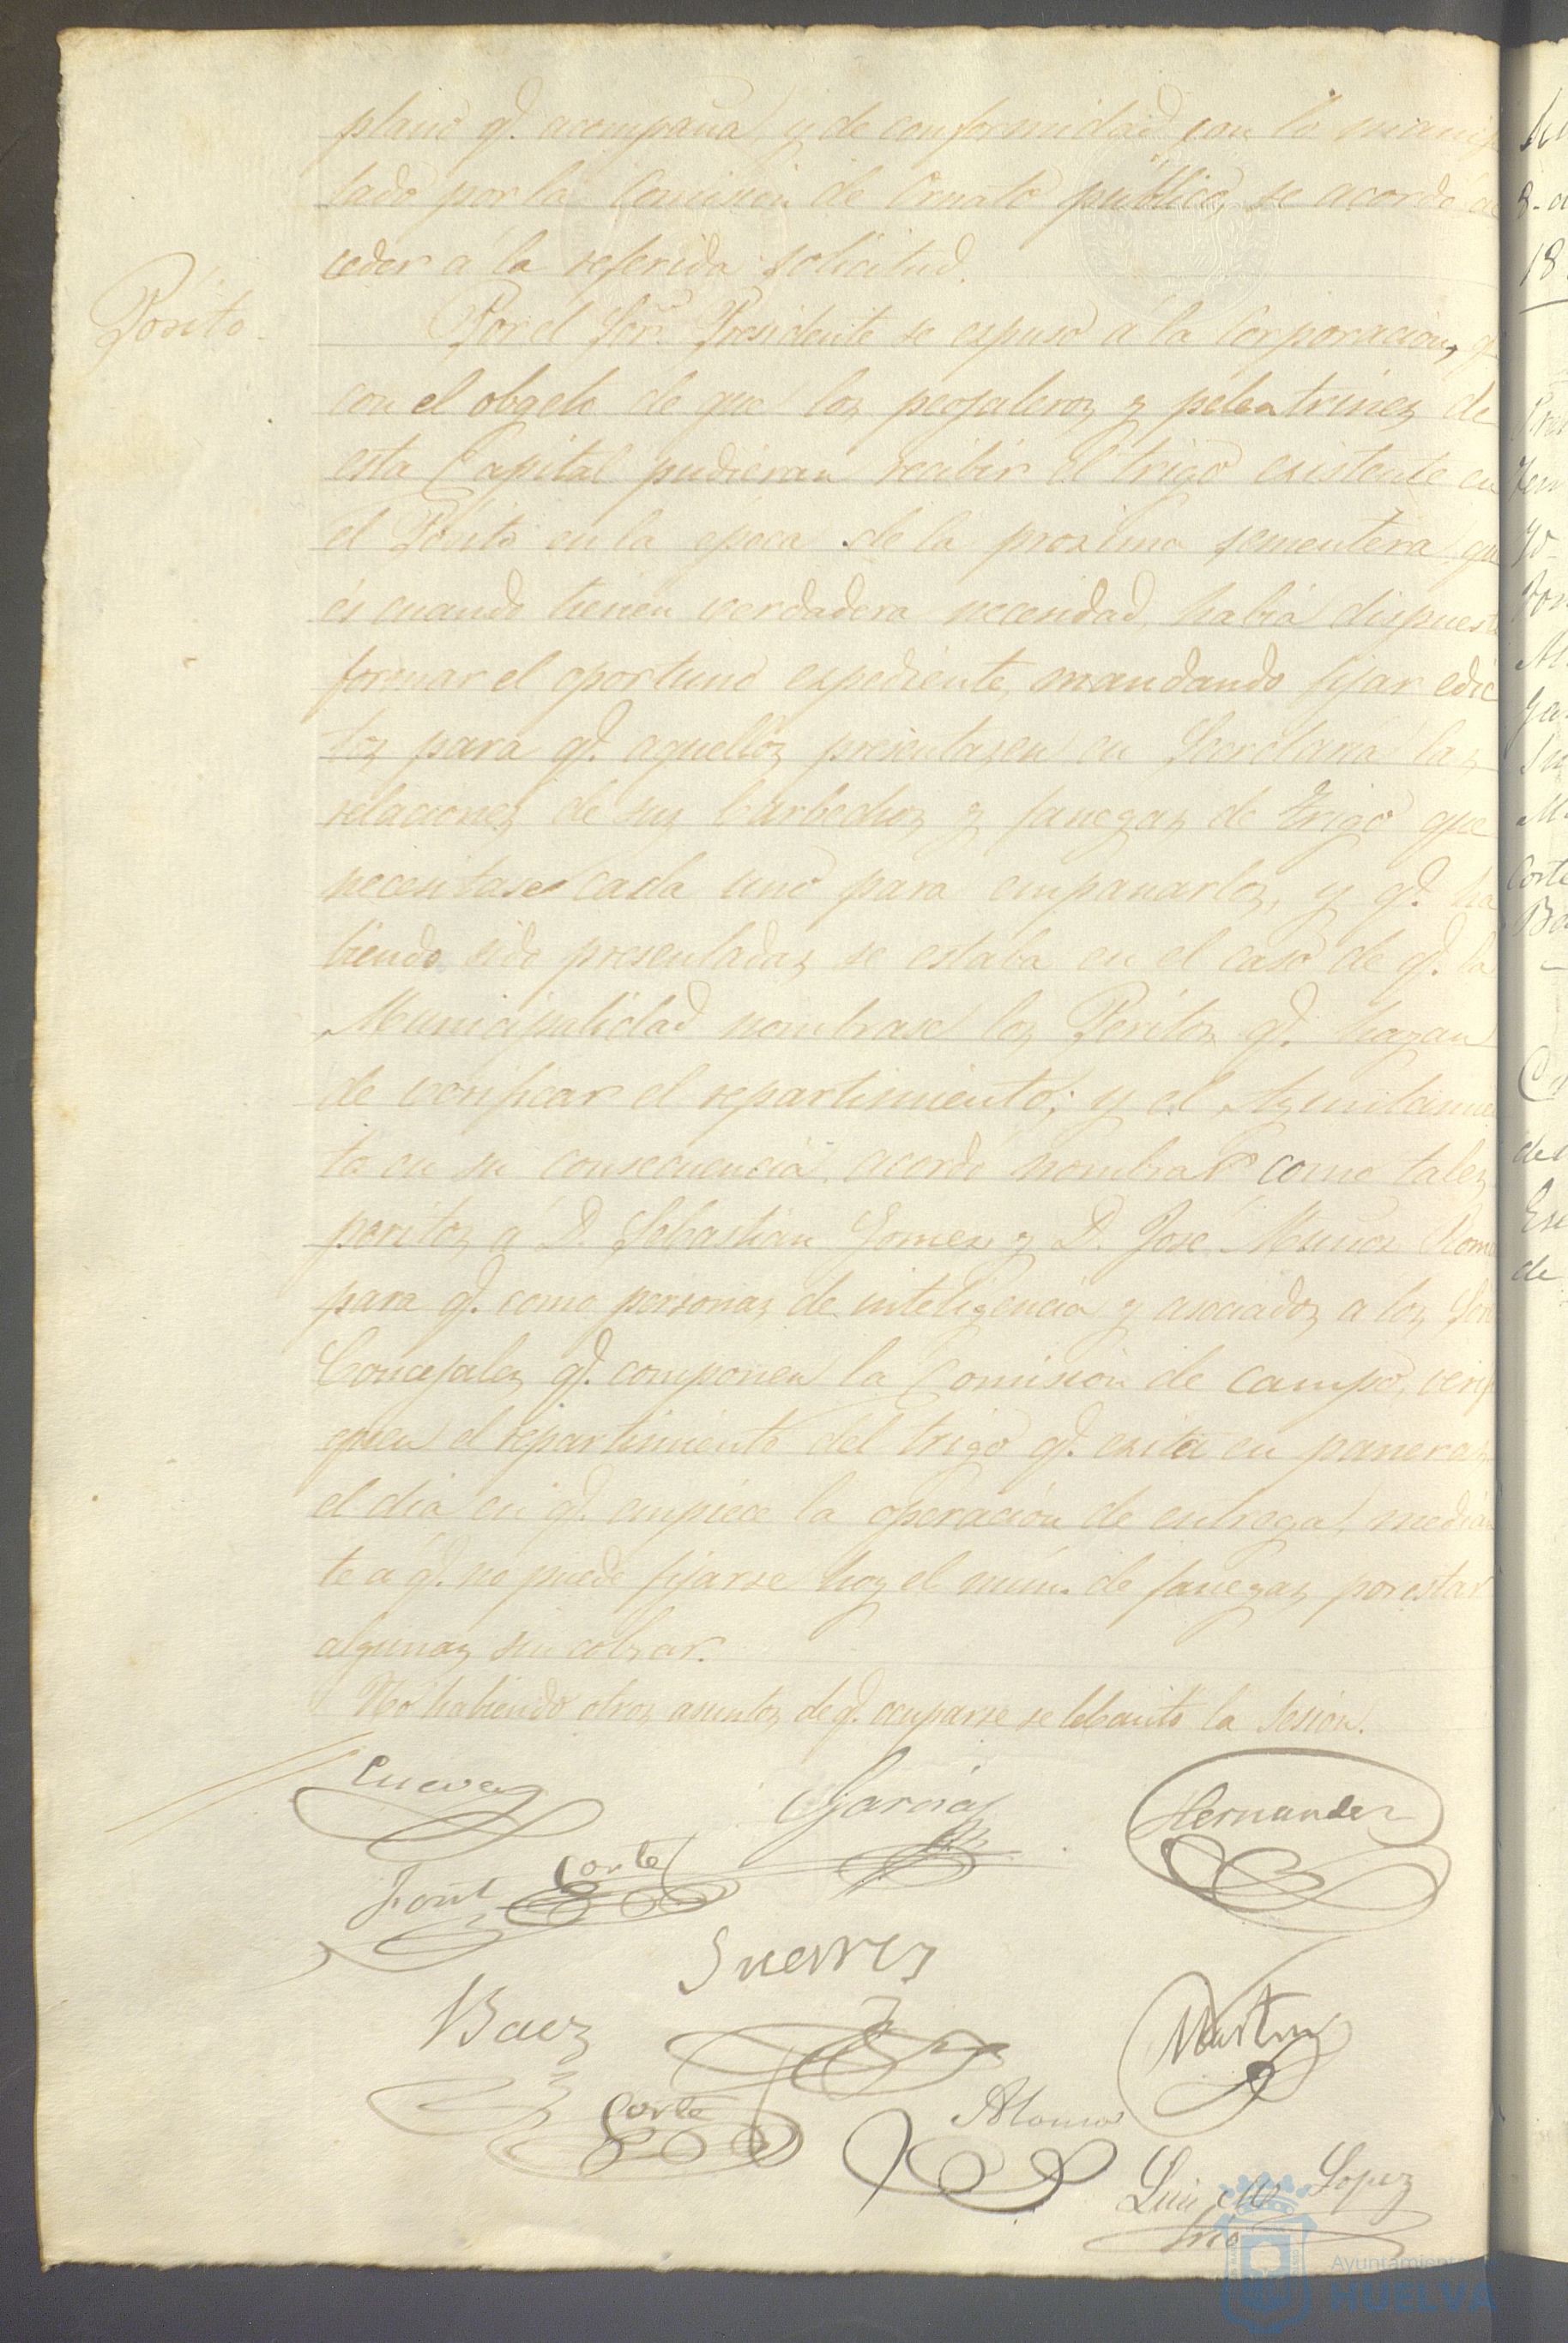 plano q.e acompaña, y de conformidad con lo manifes
tado por la Comision de Ornato público, se acordó ac
ceder á la referida solicitud.
Pósito
Por el Sor. Presidente se espuso á la Corporacion, q.e
con el obgeto de que los peojaleros y pelentrines de
esta Capital pudieran recibir el trigo existente en
el Pósito en la epoca de la proxima sementera que
es cuando tienen verdadera necesidad, habia dispuesto
formar el oportuno expediente, mandando fijar edic
tos para q.e aquellos presentasen en Secretaria las
relaciones de sus barbechos y fanegas de trigo que
necesitase cada uno para empanarlos, y q.e ha
biendo sido presentadas se estaba en el caso de q.e la
Municipalidad nombrase los Peritos q.e hayan
de verificar el repartimiento; y el Ayuntamien
to en su consecuencia, acordó nombrar como tales
peritos á D. Sebastian Gomez y D. José Muñoz
para q.e como personas de inteligencia y asociados a los Sres
Concejales q.e componen la Comision de campo, verifi
quen el repartimiento del trigo q.e exita en paneras
el dia en q.e empiece la operacion de entrega, median
te a q.e no puede fijarse hoy el núm. de fanegas por estar
algunas sin cobrar.
No habiendo otros asuntos de q.e ocuparse se lebantó la Sesion.
Cuevas
Garcia
Hernandez
Font
Corte
Suerrez
Baez
Martin
Corte
Alonso
Luis M. Lopez
Srio
Ayuntamiento
HUELVA